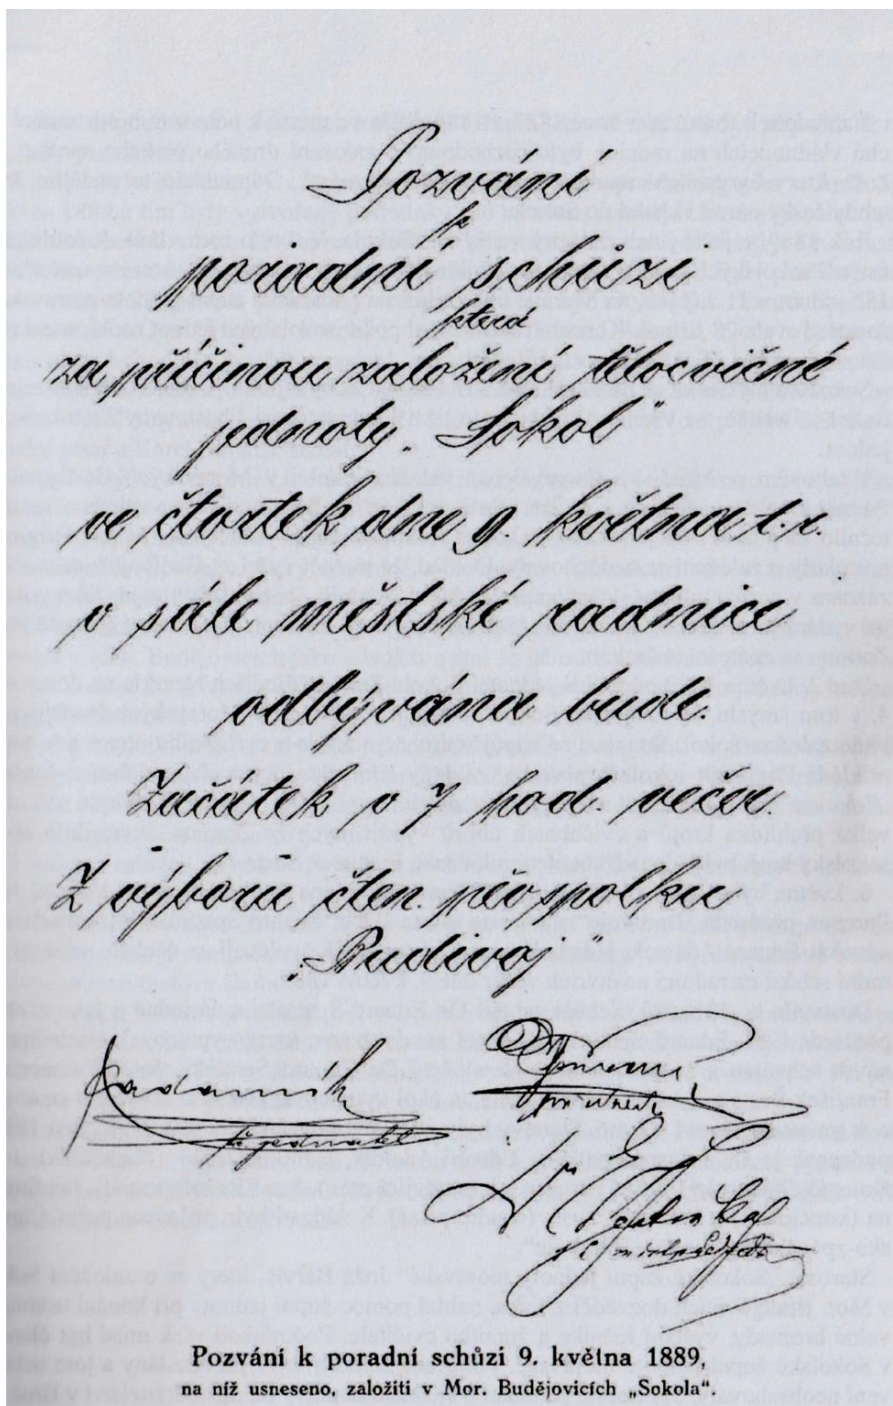 Pozvání
k
poradné schůzi
která
za příčinou založení tělocvičné
jednoty Sokol
ve čtvrtek dne 9 května t.r.
v sále městské radnice
odbývána bude.
Začátek o 7 hod. večer.
Z výboru člen. pěv spolku
„Budivoj"
jednatel
Pozvání k poradní schůzi 9. května 1889,
na níž usneseno, založiti v Mor. Budějovicích „Sokola".